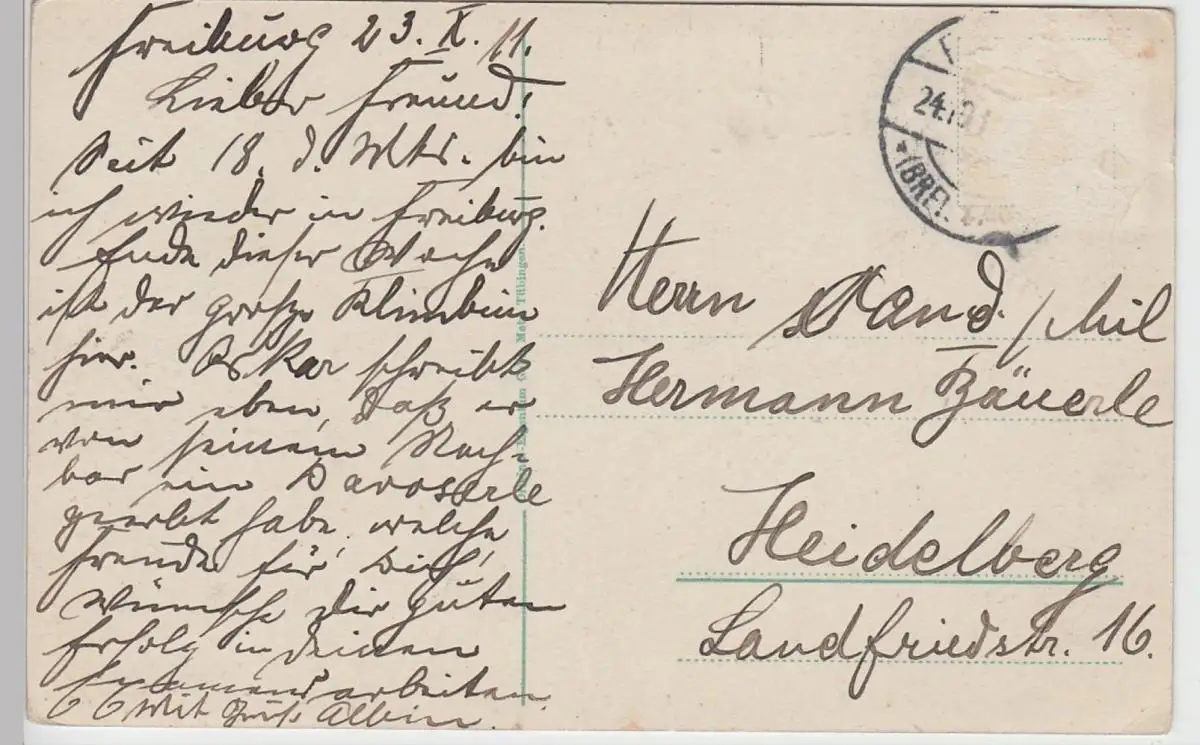 Freiburg 23. X. 11.
Lieber Freund!
Seit 18. d. Mts. bin
ich wieder in Freiburg.
Ende dieser Woche
ist der große Klimbim
hier. Oskar schreibt
mir eben, daß er
von seinem Nach-
bar ein Davoserle
geerbt habe, welche
Freude für Dich,
wünsche Dir guten
Erfolg in Deinen
Examensarbeiten.
Mit Gruß Albin.
24.10.1
*(BREI
Herrn Cand. phil
Hermann Bäuerle
Heidelberg
Landfriedstr. 16.
Metz, Tübingen